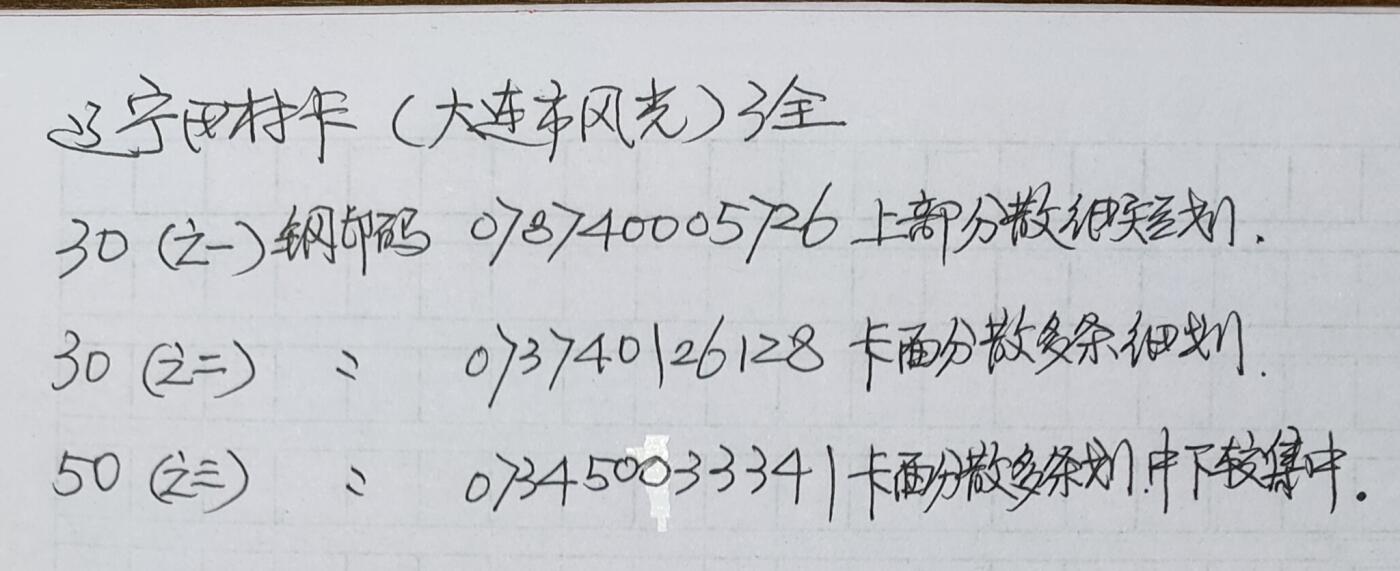 辽宁田村卡（大连市风光）3全
30（之一）钢印码 078740005726 上部分散细短划.
30（之二） 〃 073740126128 卡面分散多条细划.
50（之三） 〃 073450033341 卡面分散多条划.中下较集中.